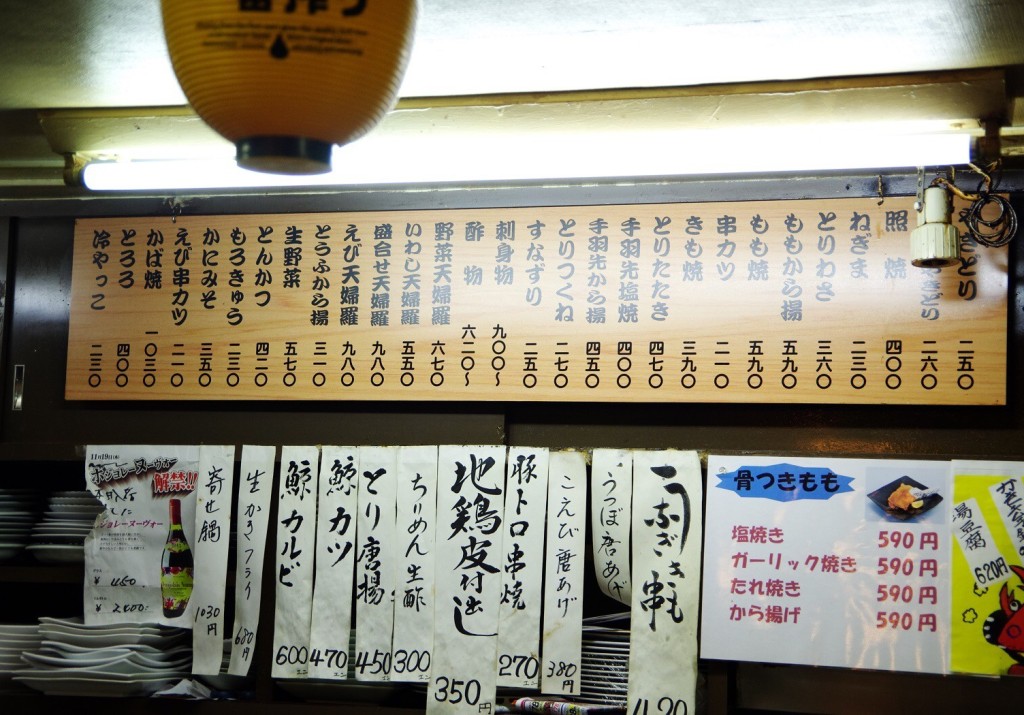 搾り
とり 二五〇
きどり 二六〇
照焼 四〇〇
ねぎま 二三〇
とりわさ 三六〇
ももから揚 五九〇
もも焼 五九〇
串カツ 二一〇
きも焼 三九〇
とりたたき 四七〇
手羽先塩焼 四〇〇
手羽先から揚 四五〇
とりつくね 二七〇
すなずり 二五〇
刺身物 九〇〇〜
酢物 六二〇〜
野菜天婦羅 六七〇
いわし天婦羅 五五〇
盛合せ天婦羅 九八〇
えび天婦羅 九八〇
とうふから揚 三一〇
生野菜 五七〇
とんかつ 四二〇
もろきゅう 二三〇
かにみそ 三五〇
えび串カツ 二一〇
かば焼 一〇三〇
とろろ 四〇〇
冷やっこ 二三〇
湯豆腐
620円
骨つきもも
塩焼き 590円
ガーリック焼き 590円
たれ焼き 590円
から揚げ 590円
うなぎき串 420
うつぼ唐あげ
こえび唐あげ 380円
豚トロ串焼 270エン
地鶏皮付造し 350円
ちりめん生酢 300エン
とり唐揚 450エン
鯨カツ 470エン
鯨カルビ 600エン
生かきフライ 680円
寄せ鍋 1030円
11月19日
ボジョレーヌーヴォー
解禁!!
ョレーヌーヴォー